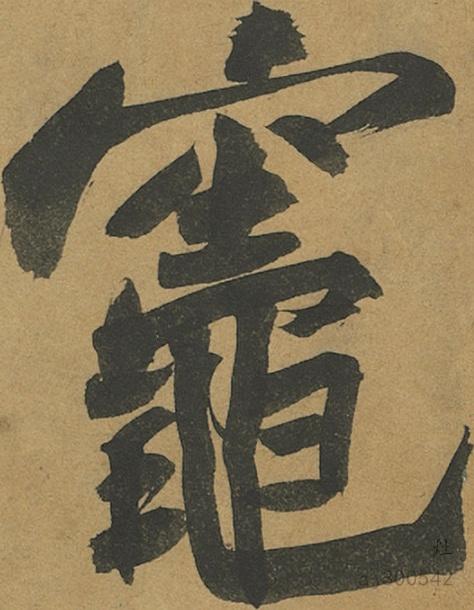 竈
灶
a1300542